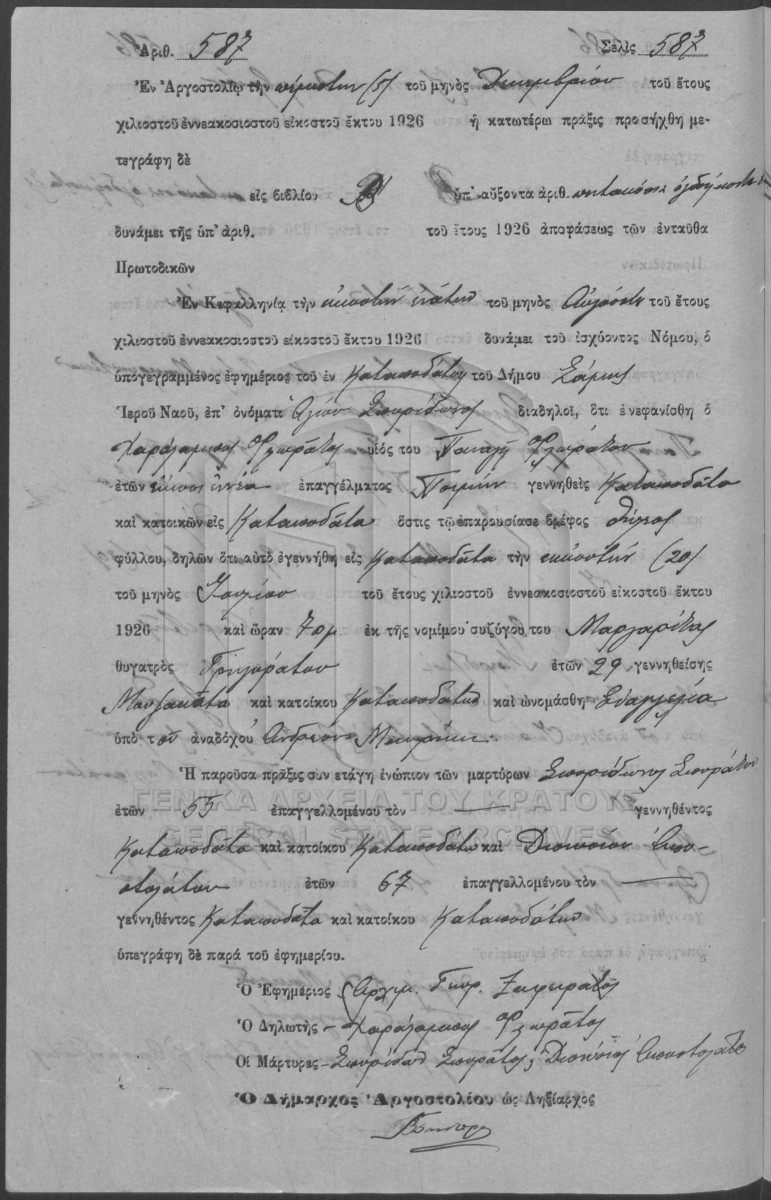 Ἀριθ. 587 Σελὶς 587
Ἐν Ἀργοστολίῳ τὴν πέμπτην (5) τοῦ μηνὸς Δεκεμβρίου τοῦ ἔτους
χιλιοστοῦ ἐννεακοσιοστοῦ εἰκοστοῦ ἕκτου 1926 ἡ κατωτέρω πρᾶξις προσήχθη με-
τεγράφη δὲ
εἰς βιβλίον Β ὑπ' αὔξοντα ἀριθ. πεντακόσια ὀγδοήκοντα
δυνάμει τῆς ὑπ' ἀριθ. τοῦ ἔτους 1926 ἀποφάσεως τῶν ἐνταῦθα
Πρωτοδικῶν
Ἐν Κεφαλληνίᾳ τὴν εἰκοστὴν ἐνάτην τοῦ μηνὸς Αὐγούστου τοῦ ἔτους
χιλιοστοῦ ἐννεακοσιοστοῦ εἰκοστοῦ ἕκτου 1926 δυνάμει τοῦ ἰσχύοντος Νόμου, ὁ
ὑπογεγραμμένος ἐφημέριος τοῦ ἐν Καταποδάτα τοῦ Δήμου Σάμης
Ἱεροῦ Ναοῦ, ἐπ' ὀνόματι Ἁγίου Σπυρίδωνος διαδηλοῖ, ὅτι ἐνεφανίσθη ὁ
Χαράλαμπος Φλωράτος υἱός του Παναγῆ Φλωράτου
ἐτῶν εἴκοσι ἐννέα ἐπαγγέλματος Ποιμὴν γεννηθεὶς Καταποδάτα
καὶ κατοικῶν εἰς Καταποδάτα ὅστις τῷ ἐπαρουσίασε βρέφος θήλεος
φύλλου, δηλῶν ὅτι αὐτὸ ἐγεννήθη εἰς Καταποδάτα τὴν εἰκοστὴν (20)
τοῦ μηνὸς Ἰουλίου τοῦ ἔτους χιλιοστοῦ ἐννεακοσιοστοῦ εἰκοστοῦ ἕκτου
1926 καὶ ὥραν 7 πμ ἐκ τῆς νομίμου συζύγου του Μαργαρίτας
θυγατρὸς Γρηγοράτου ἐτῶν 29 γεννηθείσης
Μουζακάτα καὶ κατοίκου Καταποδάτα καὶ ὠνομάσθη Εὐαγγελία
ὑπὸ τοῦ ἀναδόχου Ἀνδρέου
Ἡ παροῦσα πρᾶξις συνετάγη ἐνώπιον τῶν μαρτύρων Σπυρίδωνος Σπυράτου
ἐτῶν 55 ἐπαγγελλομένου τὸν — γεννηθέντος
Καταποδάτα καὶ κατοίκου Καταποδάτα καὶ Διονυσίου Ἀπο-
στολάτου ἐτῶν 67 ἐπαγγελλομένου τὸν —
γεννηθέντος Καταποδάτα καὶ κατοίκου Καταποδάτα
ὑπεγράφη δὲ παρὰ τοῦ ἐφημερίου.
Ὁ Ἐφημέριος Ἀρχιμ. Γερ. Ζαφειρᾶτος
Ὁ Δηλωτὴς – Χαράλαμπος Φλωράτος
Οἱ Μάρτυρες – Σπυρίδων Σπυράτος, Διονύσιος Ἀποστολάτος
Ὁ Δήμαρχος Ἀργοστολίου ὡς Ληξίαρχος
ΓΕΝΙΚΑ ΑΡΧΕΙΑ ΤΟΥ ΚΡΑΤΟΥΣ
GENERAL STATE ARCHIVES